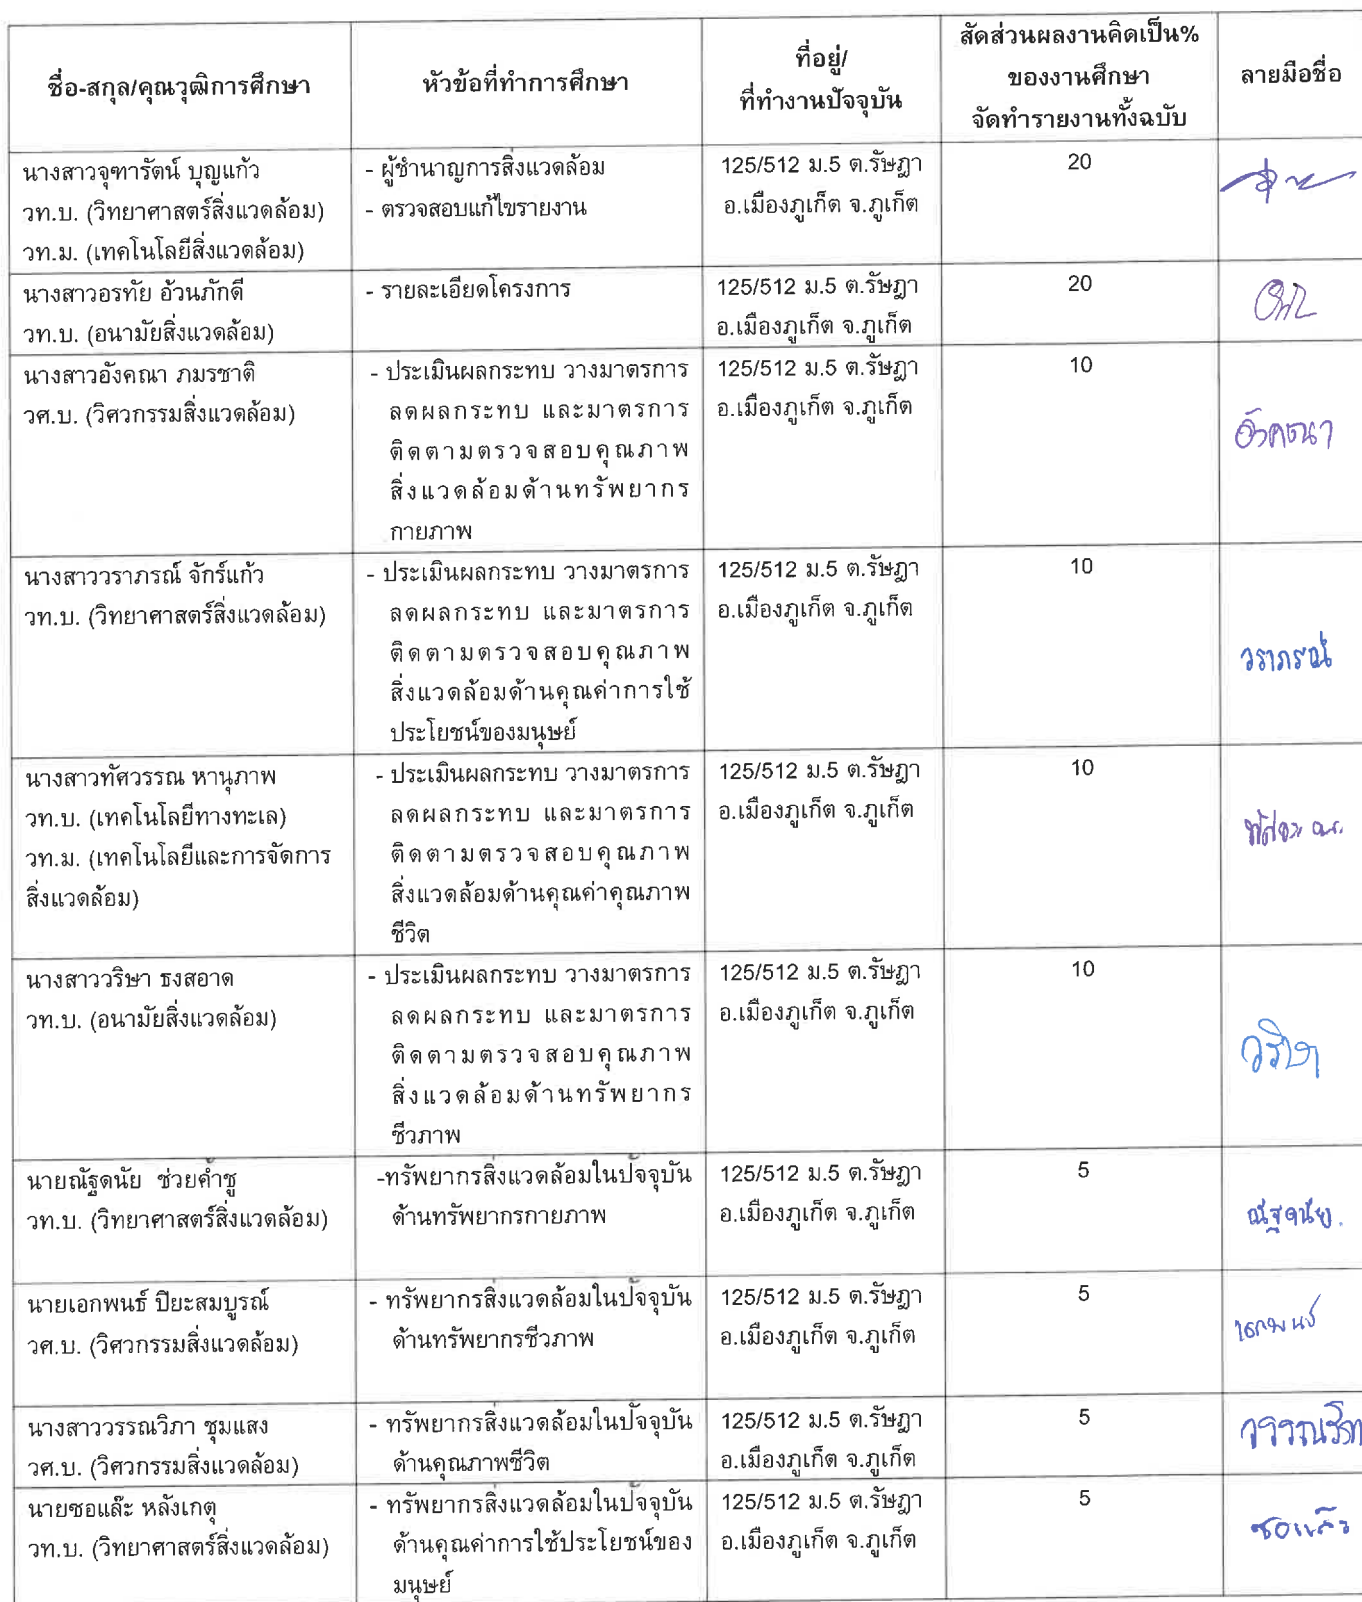 ชื่อ-สกุล/คุณวุฒิการศึกษา
หัวข้อที่ทำการศึกษา
ที่อยู่/
ที่ทำงานปัจจุบัน
สัดส่วนผลงานคิดเป็น%
ของงานศึกษา
จัดทำรายงานทั้งฉบับ
ลายมือชื่อ
นางสาวจุฑารัตน์ บุญแก้ว
วท.บ. (วิทยาศาสตร์สิ่งแวดล้อม)
วท.ม. (เทคโนโลยีสิ่งแวดล้อม)
- ผู้ชำนาญการสิ่งแวดล้อม
- ตรวจสอบแก้ไขรายงาน
125/512 ม.5 ต.รัษฎา
อ.เมืองภูเก็ต จ.ภูเก็ต
20
นางสาวอรทัย อ้วนภักดี
วท.บ. (อนามัยสิ่งแวดล้อม)
- รายละเอียดโครงการ
125/512 ม.5 ต.รัษฎา
อ.เมืองภูเก็ต จ.ภูเก็ต
20
นางสาวอังคณา ภมรชาติ
วศ.บ. (วิศวกรรมสิ่งแวดล้อม)
- ประเมินผลกระทบ วางมาตรการ
ลดผลกระทบ และมาตรการ
ติดตามตรวจสอบคุณภาพ
สิ่งแวดล้อมด้านทรัพยากร
กายภาพ
125/512 ม.5 ต.รัษฎา
อ.เมืองภูเก็ต จ.ภูเก็ต
10
อังคณา
นางสาววราภรณ์ จักร์แก้ว
วท.บ. (วิทยาศาสตร์สิ่งแวดล้อม)
- ประเมินผลกระทบ วางมาตรการ
ลดผลกระทบ และมาตรการ
ติดตามตรวจสอบคุณภาพ
สิ่งแวดล้อมด้านคุณค่าการใช้
ประโยชน์ของมนุษย์
125/512 ม.5 ต.รัษฎา
อ.เมืองภูเก็ต จ.ภูเก็ต
10
วราภรณ์
นางสาวทัศวรรณ หานุภาพ
วท.บ. (เทคโนโลยีทางทะเล)
วท.ม. (เทคโนโลยีและการจัดการ
สิ่งแวดล้อม)
- ประเมินผลกระทบ วางมาตรการ
ลดผลกระทบ และมาตรการ
ติดตามตรวจสอบคุณภาพ
สิ่งแวดล้อมด้านคุณค่าคุณภาพ
ชีวิต
125/512 ม.5 ต.รัษฎา
อ.เมืองภูเก็ต จ.ภูเก็ต
10
นางสาววริษา ธงสอาด
วท.บ. (อนามัยสิ่งแวดล้อม)
- ประเมินผลกระทบ วางมาตรการ
ลดผลกระทบ และมาตรการ
ติดตามตรวจสอบคุณภาพ
สิ่งแวดล้อมด้านทรัพยากร
ชีวภาพ
125/512 ม.5 ต.รัษฎา
อ.เมืองภูเก็ต จ.ภูเก็ต
10
วริษา
นายณัฐดนัย ช่วยค้ำชู
วท.บ. (วิทยาศาสตร์สิ่งแวดล้อม)
-ทรัพยากรสิ่งแวดล้อมในปัจจุบัน
ด้านทรัพยากรกายภาพ
125/512 ม.5 ต.รัษฎา
อ.เมืองภูเก็ต จ.ภูเก็ต
5
ณัฐดนัย.
นายเอกพนธ์ ปิยะสมบูรณ์
วศ.บ. (วิศวกรรมสิ่งแวดล้อม)
- ทรัพยากรสิ่งแวดล้อมในปัจจุบัน
ด้านทรัพยากรชีวภาพ
125/512 ม.5 ต.รัษฎา
อ.เมืองภูเก็ต จ.ภูเก็ต
5
เอกพนธ์
นางสาววรรณวิภา ชุมแสง
วศ.บ. (วิศวกรรมสิ่งแวดล้อม)
- ทรัพยากรสิ่งแวดล้อมในปัจจุบัน
ด้านคุณภาพชีวิต
125/512 ม.5 ต.รัษฎา
อ.เมืองภูเก็ต จ.ภูเก็ต
5
นายซอแล๊ะ หลังเกตุ
วท.บ. (วิทยาศาสตร์สิ่งแวดล้อม)
- ทรัพยากรสิ่งแวดล้อมในปัจจุบัน
ด้านคุณค่าการใช้ประโยชน์ของ
มนุษย์
125/512 ม.5 ต.รัษฎา
อ.เมืองภูเก็ต จ.ภูเก็ต
5